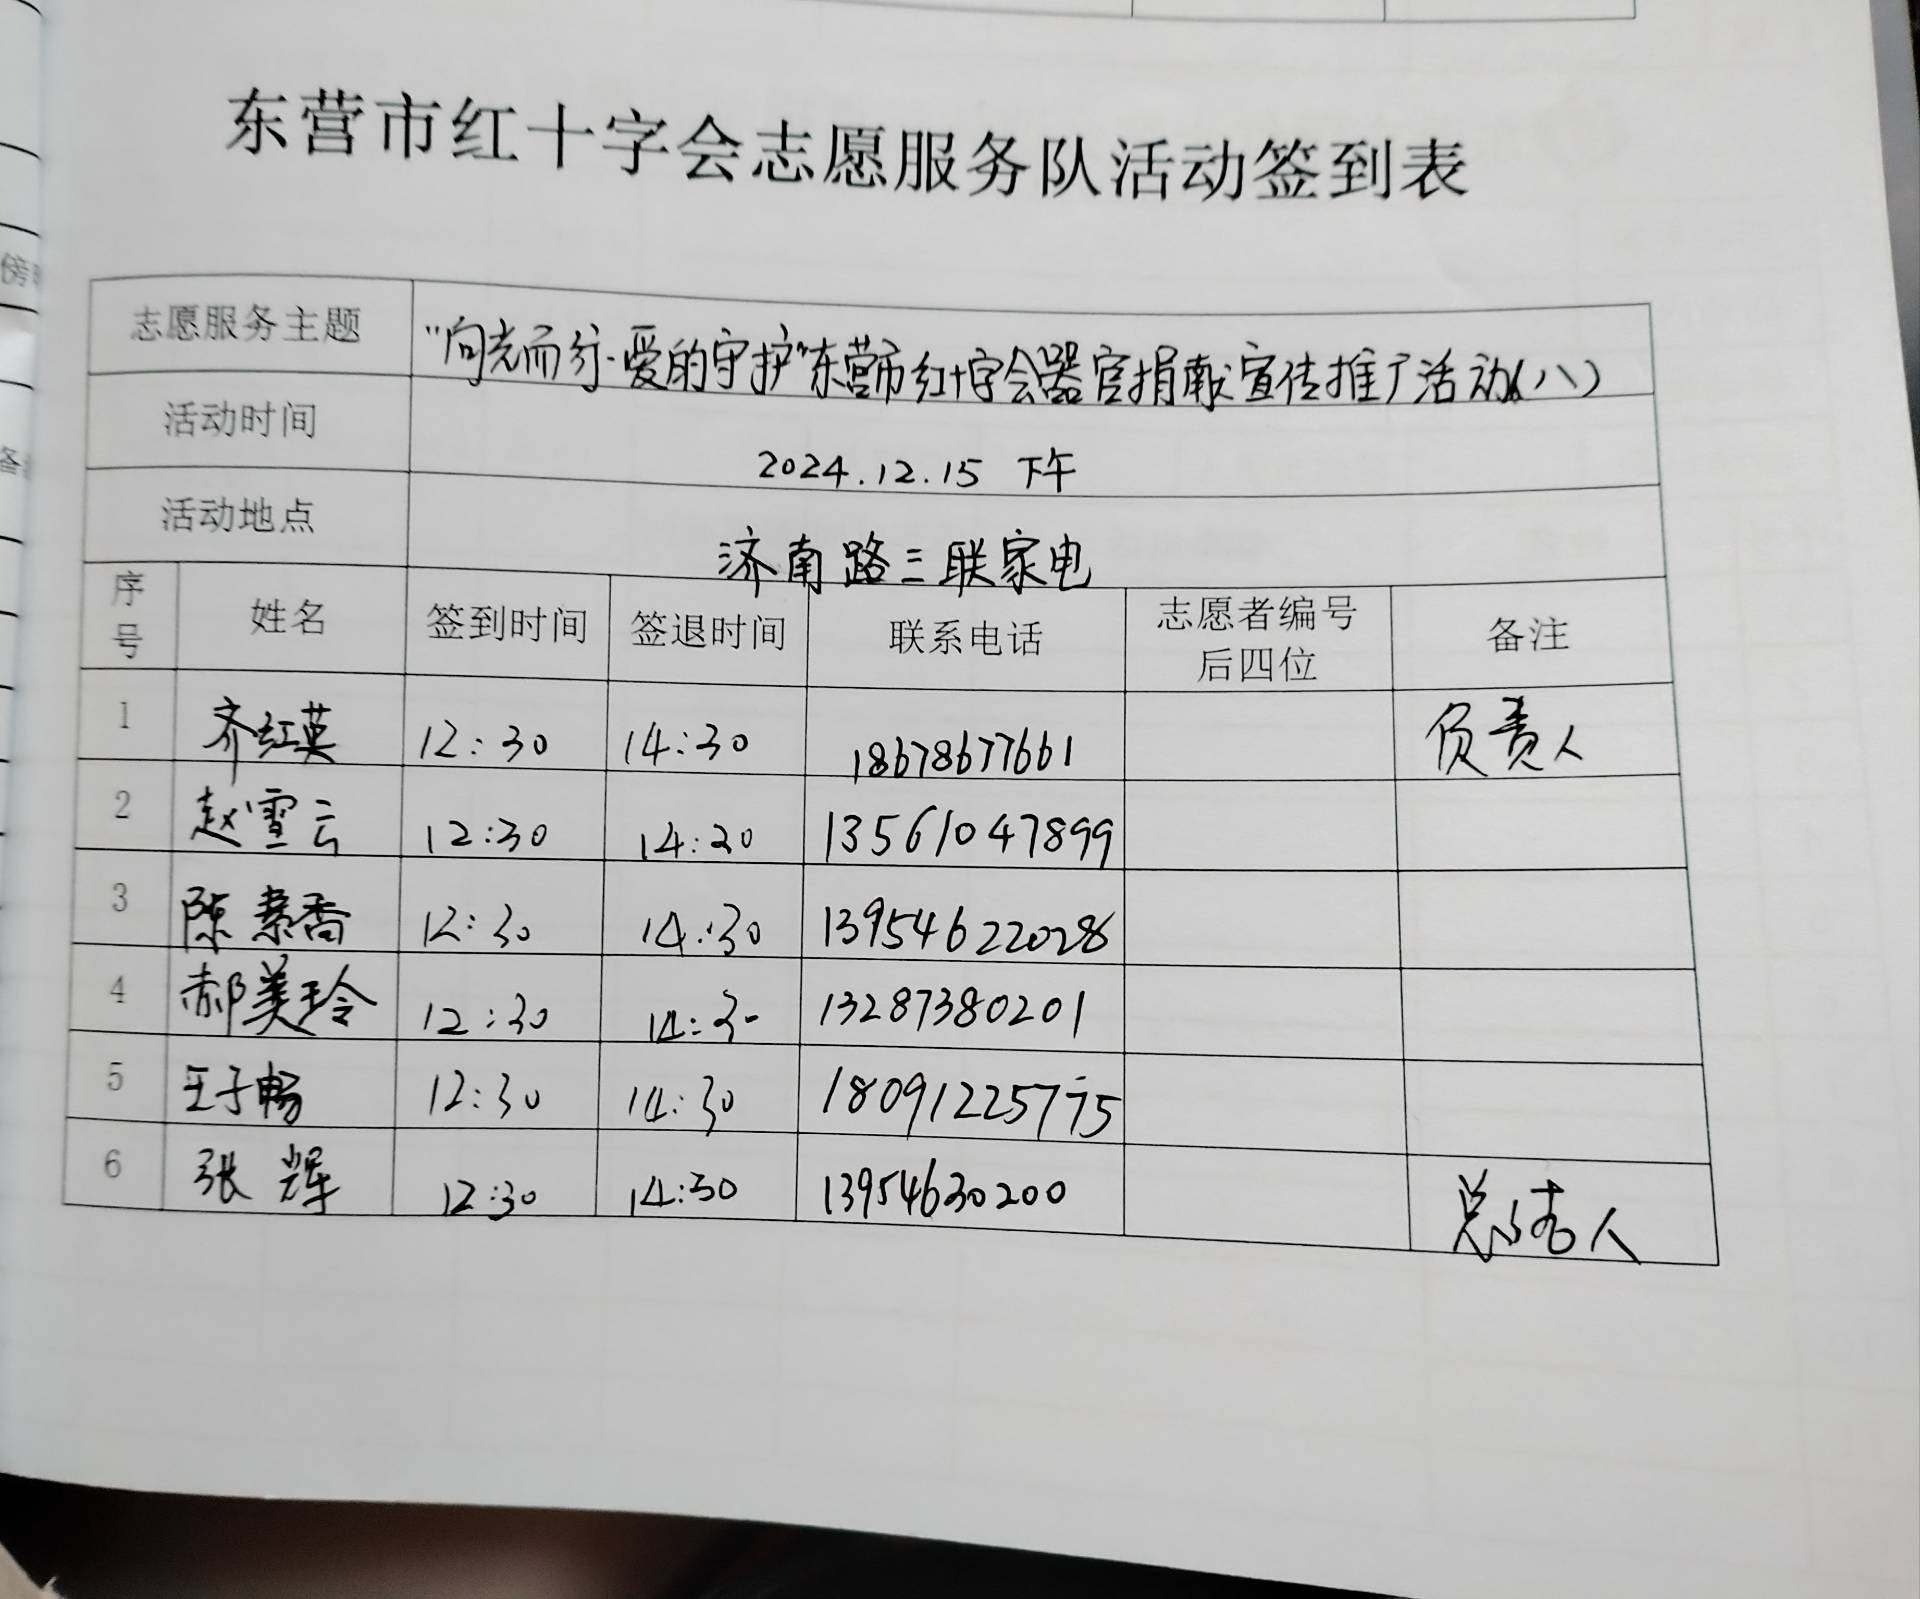 东营市红十字会志愿服务队活动签到表
志愿服务主题 “向光而行·爱的守护”东营市红十字会器官捐献宣传推广活动(八)
活动时间 2024.12.15 下午
活动地点 济南路三联家电
序号 姓名 签到时间 签退时间 联系电话 志愿者编号后四位 备注
1 齐红英 12:30 14:30 18678677661 负责人
2 赵雪云 12:30 14:20 13561047899
3 陈素香 12:30 14:30 13954622028
4 郝美玲 12:30 14:30 13287380201
5 王子畅 12:30 14:30 18091225775
6 张辉 12:30 14:30 13954630200 总结人
傍
备